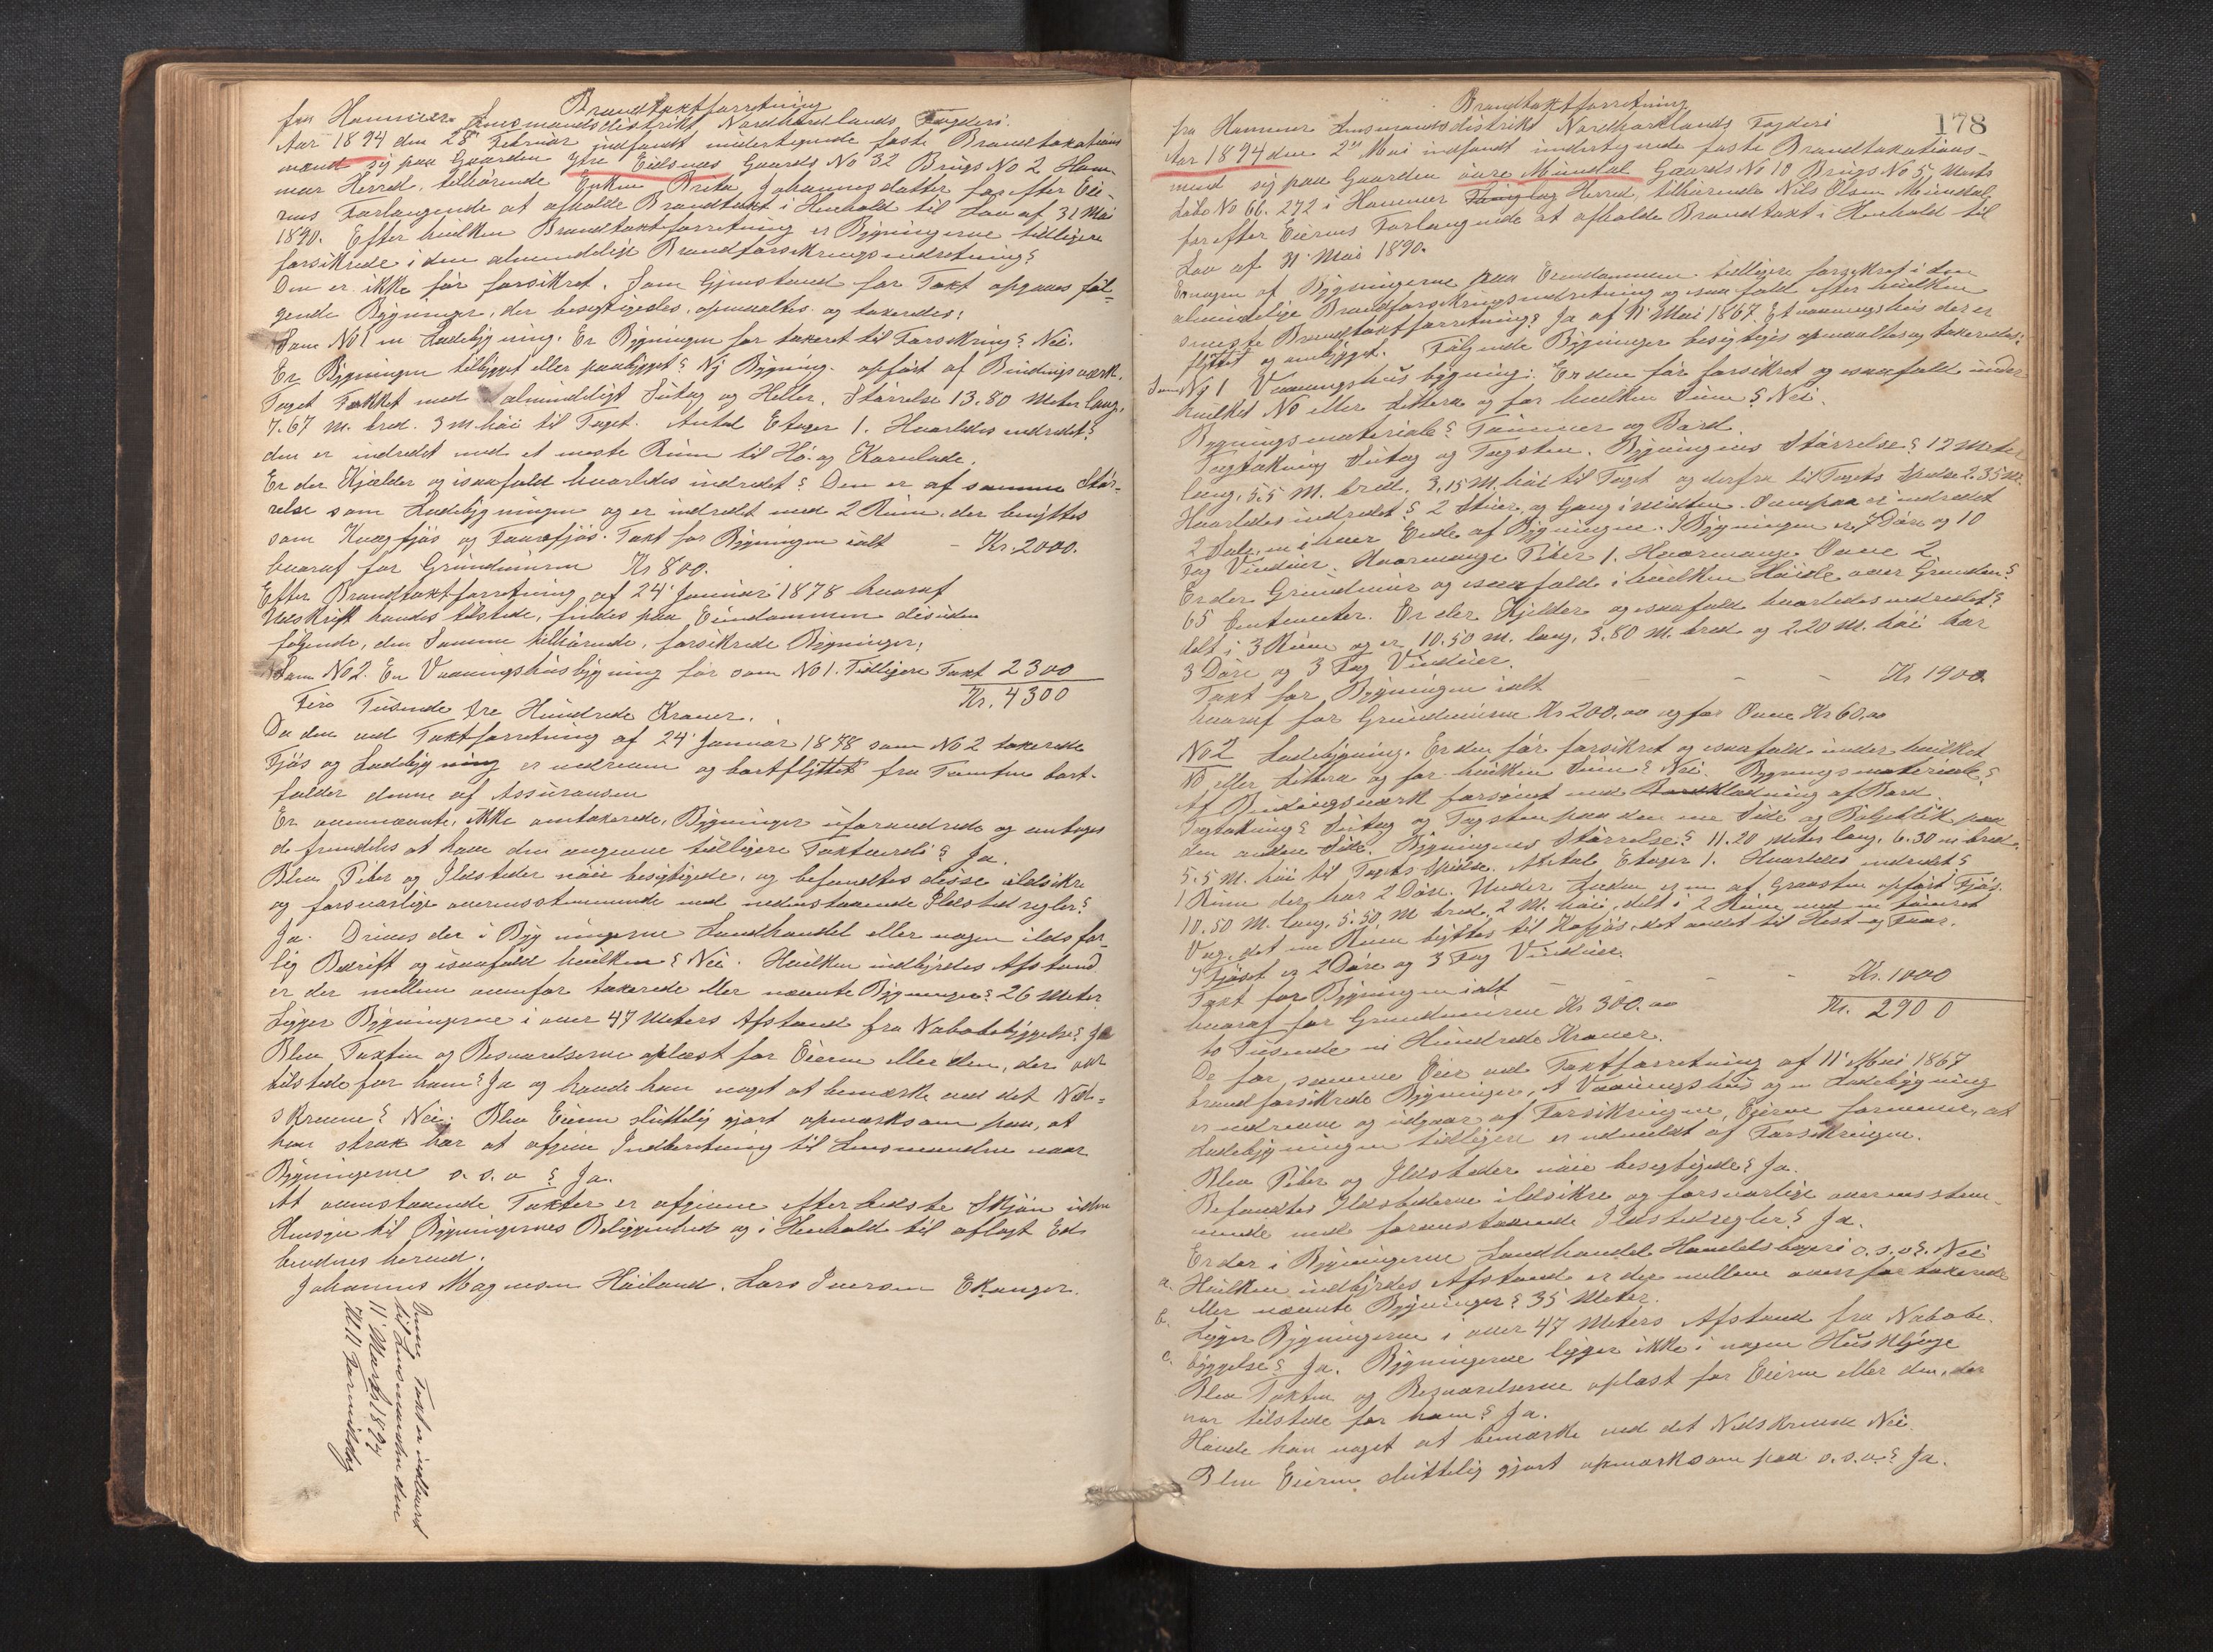 Brandtaxtforretning
fra Hammer Lensmandsdistrikt Nordhordlands Fogderi.
Aar 1894 den 28' Februar indfandt undertegnede faste Brandtakations
mænd sig paa Gaarden Ytre Eidsnes Gaards No 32 Brugs No 2 Ham-
mer Herred, tilhörende Enken Brita Johannesdatter for efter Eie-
rens Forlangende at afholde Brandtaxt i Henhold til Lov af 31 Mai
1890. Efter hvilken Brandtaxtforretning er Bygningerne tidligere
forsikrede i den almindelige Brandforsikringsindretning?
Den er ikke för forsikret. Som Gjenstand for Taxt opgaves föl-
gende Bygninger, der besigtigedes, opmaaltes og takseredes:
Som No 1 en Ladebygning. Er Bygningen för takseret til Forsikring? Nei.
Er Bygningen tilbygget eller paabygget? Ny Bygning. opfört af Bindingsværk.
Taget Tækket med almindeligt Sutag og Heller. Störrelse 13.80 Meter lang,
7.67 m. bred. 3 m höi til Taget. Antal Etager 1. Hvorledes indredet?
den er indredet med et meste Rum til Hö- og Kornlade.
Er der Kjælder og isaafald hvorledes indredet? Den er af samme Stör-
relse som Ladebygningen og er indredet med 2 Rum, der benyttes
som Kvægfjös og Faarefjös. Taxt for Bygningen ialt - Kr. 2000.
hvoraf for Grundmuren Kr 800.
Efter Brandtaxtforretning af 24' Januar 1878 hvoraf
Udskrift havdes tilstede, findes paa Eiendommen desuden
fölgende, den Samme tilhörende, forsikrede Bygninger:
Som No 2. En Vaaningshusbygning för som No 1. Tidligere Taxt 2300
Kr. 4300
Fire Tusende tre Hundrede Kroner.
Da den ved Taxtforretning af 24' Januar 1878 som No 2 takserede
Fjös og Ladebygning er nedreven og bortflyttet fra Tomten bort-
falder denne af Assurancen
Er ovennævnte, ikke omtakserede, Bygninger uforandrede og antages
de fremdeles at have den angivne tidligere Taxtværdi? Ja.
Blev Piber og Ildsteder nöie besigtigede, og befandtes disse ildsikre
og forsvarlige overensstemmende med nedenstaaende Ildsted regler?
Ja. Drives der i Bygningerne Landhandel eller nogen ildsfar-
lig Bedrift og isaafald hvilken? Nei. Hvilken indbyrdes Afstand
er der mellem ovenfor takserede eller nævnte Bygninger? 26 Meter
Ligger Bygningerne i over 47 Meters Afstand fra Nabobebyggelse? Ja
Blev Taxten og Besvarelserne oplæst for Eieren eller den, der var
tilstede for ham? Ja og havde han noget at bemærke ved det Ned-
skrevne? Nei. Blev Eieren sluttelig gjort opmærksom paa, at
han strax bør at afgive Indberetning til Lensmanden naar
Bygningerne o.s.v.? Ja.
At ovenstaaende Taxter er afgivne efter bedste Skjön uden
Hensyn til Bygningernes Beliggenhed og i Henhold til aflagt Ed
bevidnes herved.
Johannes Magnesen Höiland. Lars Iversen Ekanger.
Denne Taxt er indleveret
til Lensmanden den
11' Marts 1894
178
Brandtaxtforretning
fra Hammer Lensmandsdistrikt Nordhordlands Fogderi
Aar 1894 den 2den Mai indfandt undertegnede faste Brandtakations-
mænd sig paa Gaarden övre Mundal Gaards No 10 Brugs No 5 Matr.
Löbe No 66. 272 i Hammer Thinglag Herred, tilhörende Nils Olsen Mundal
for efter Eierens Forlangende at afholde Brandtaxt i Henhold til
Lov af 31' Mai 1890.
Er nogen af Bygningerne paa Eiendommen tidligere forsikret i den
almindelige Brandforsikringsindretning og isaafald efter hvilken
seneste Brandtaxtforretning? Ja af 11' Mai 1867. Et vaaningshus der er
flyttet og ombygget. Fölgende Bygninger besigtiges opmaaltes og takseredes:
Som No 1 Vaaningshusbygning. Er den för forsikret og isaafald under
hvilket No eller Littera og for hvilken Sum? Nei.
Bygningsmateriale? Tömmer og Bord.
Tagtækning Sutag og Tagsten. Bygningens Störrelse? 12 Meter
lang, 5.5 M. bred. 3.15 M. höi til Taget og derfra til Tagets Spidse 2.35 M.
Hvorledes indredet? 2 Stuer og Gang i midten. Ovenpaa er indredet
2 Sale, en i hver Ende af Bygningen. I Bygningen er 7 Döre og 10
Fag Vinduer. Hvormange Piber 1. Hvormange Ovne 2.
Er der Grundmur og isaafald i hvilken Höide over Grunden?
65 Centmeter. Er der Kjelder og isaafald hvorledes indredet?
delt i 3 Rum og er 10.50 m. lang, 3.80 M. bred og 2.20 M. höi har
3 Döre og 3 Fag Vinduer.
Taxt for Bygningen ialt - - - Kr 1900.
hvoraf for Grundmuren Kr 200,00 og for Ovne Kr 60,00
No 2 Ladebygning. Er den för forsikret og isaafald under hvilket
No eller Littera og for hvilken Sum? Nei. Bygningsmateriale?
Af Bindingsværk forsynet med Bordklædning af Bord.
Tagtækning? Sutag og Tagsten paa den ene Side og Bølgeblik paa
den anden Side. Bygningens Störrelse? 11.20 Meter lang, 6.30 m bred.
5.5 M. höi til Tagets Spidse. Antal Etager 1. Hvorledes indredet?
1 Rum der har 2 Döre. Under Laden er en af Graasten opfört Fjös.
10.50 M. lang, 5.50 M bred, 2 M. höi, delt i 2 Rum med en tömret
Væg, det ene Rum byttes til Kofjös, det andet til Hest og Faar.
I Fjöset er 2 Döre og 3 Fag Vinduer.
Taxt for Bygningen ialt - - - Kr. 1000
hvoraf for Grundmuren Kr 300.00 Kr. 2900
to Tusende ni Hundrede Kroner.
De for samme Eier ved Taxtforretning af 11' Mai 1867
brandforsikrede Bygninger, et Vaaningshus og en Ladebygning
er nedrevne og udgaar af Forsikringen. Eieren formener, at
Ladebygningen tidligere er udmeldt af Forsikringen.
Blev Piber og Ildsteder nöie besigtigede? Ja.
Befandtes Ildstederne ildsikre og forsvarlige overensstem-
mende med foranstaaende Ildstedregler? Ja.
Er der i Bygningerne Landhandel Handelsbageri o.s.v? Nei
a. Hvilken indbyrdes Afstand er der mellem ovenfor takserede
eller nævnte Bygninger? 35 Meter.
b. Ligger Bygningerne i over 47 Meters Afstand fra Nabobe-
c. byggelse? Ja. Bygningerne ligger ikke i nogen Husklynge
Blev Taxten og Besvarelserne oplæst for Eieren eller den, der
var tilstede for ham? Ja.
Havde han noget at bemærke ved det Nedskrevne Nei.
Blev Eieren sluttelig gjort opmærksom paa o.s.v? Ja.